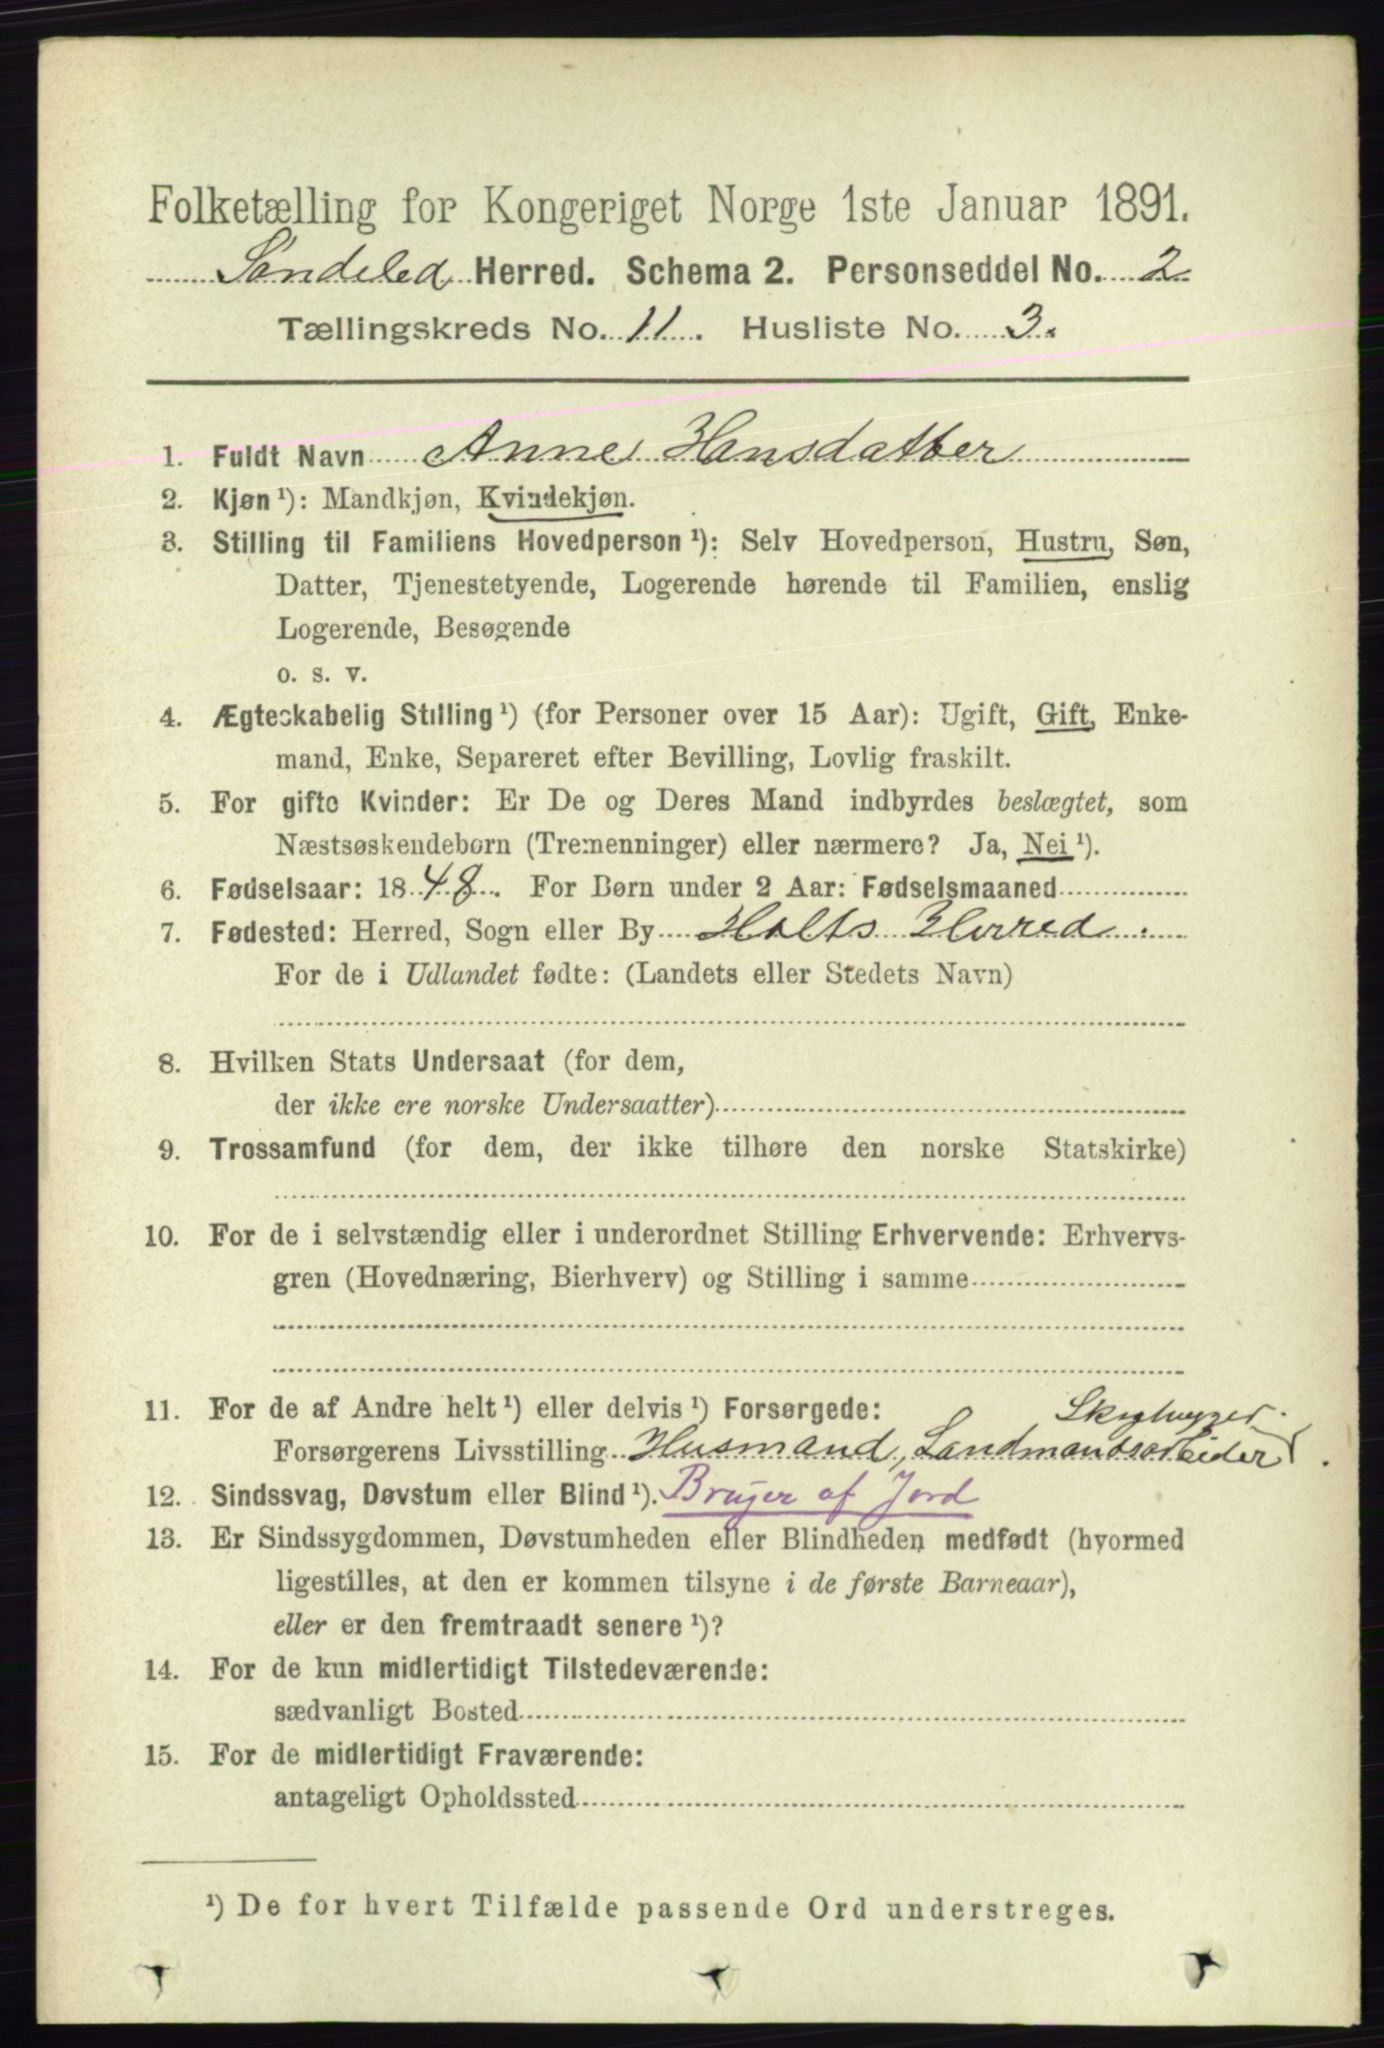 Folketælling for Kongeriget Norge 1ste Januar 1891.
Søndeled Herred. Schema 2. Personseddel No. 2
Tællingskreds No. 11. Husliste No. 3.
1. Fuldt Navn Anne Hansdatter
2. Kjøn ¹): Mandkjøn, Kvindekjøn.
3. Stilling til Familiens Hovedperson ¹): Selv Hovedperson, Hustru, Søn,
Datter, Tjenestetyende, Logerende hørende til Familien, enslig
Logerende, Besøgende
o. s. v.
4. Ægteskabelig Stilling ¹) (for Personer over 15 Aar): Ugift, Gift, Enke-
mand, Enke, Separeret efter Bevilling, Lovlig fraskilt.
5. For gifte Kvinder: Er De og Deres Mand indbyrdes beslægtet, som
Næstsøskendebørn (Tremenninger) eller nærmere? Ja, Nei ¹).
6. Fødselsaar: 1848. For Børn under 2 Aar: Fødselsmaaned
7. Fødested: Herred, Sogn eller By Holts Herred.
For de i Udlandet fødte: (Landets eller Stedets Navn)
8. Hvilken Stats Undersaat (for dem,
der ikke ere norske Undersaatter)
9. Trossamfund (for dem, der ikke tilhøre den norske Statskirke)
10. For de i selvstændig eller i underordnet Stilling Erhvervende: Erhvervs-
gren (Hovednæring, Bierhverv) og Stilling i samme
11. For de af Andre helt ¹) eller delvis ¹) Forsørgede:
Skovhugger
Forsørgerens Livsstilling Husmand, Landmandsarbeider.
12. Sindssvag, Døvstum eller Blind ¹). Bruger af Jord
13. Er Sindssygdommen, Døvstumheden eller Blindheden medfødt (hvormed
ligestilles, at den er kommen tilsyne i de første Barneaar),
eller er den fremtraadt senere ¹)?
14. For de kun midlertidigt Tilstedeværende:
sædvanligt Bosted
15. For de midlertidigt Fraværende:
antageligt Opholdssted
¹) De for hvert Tilfælde passende Ord understreges.